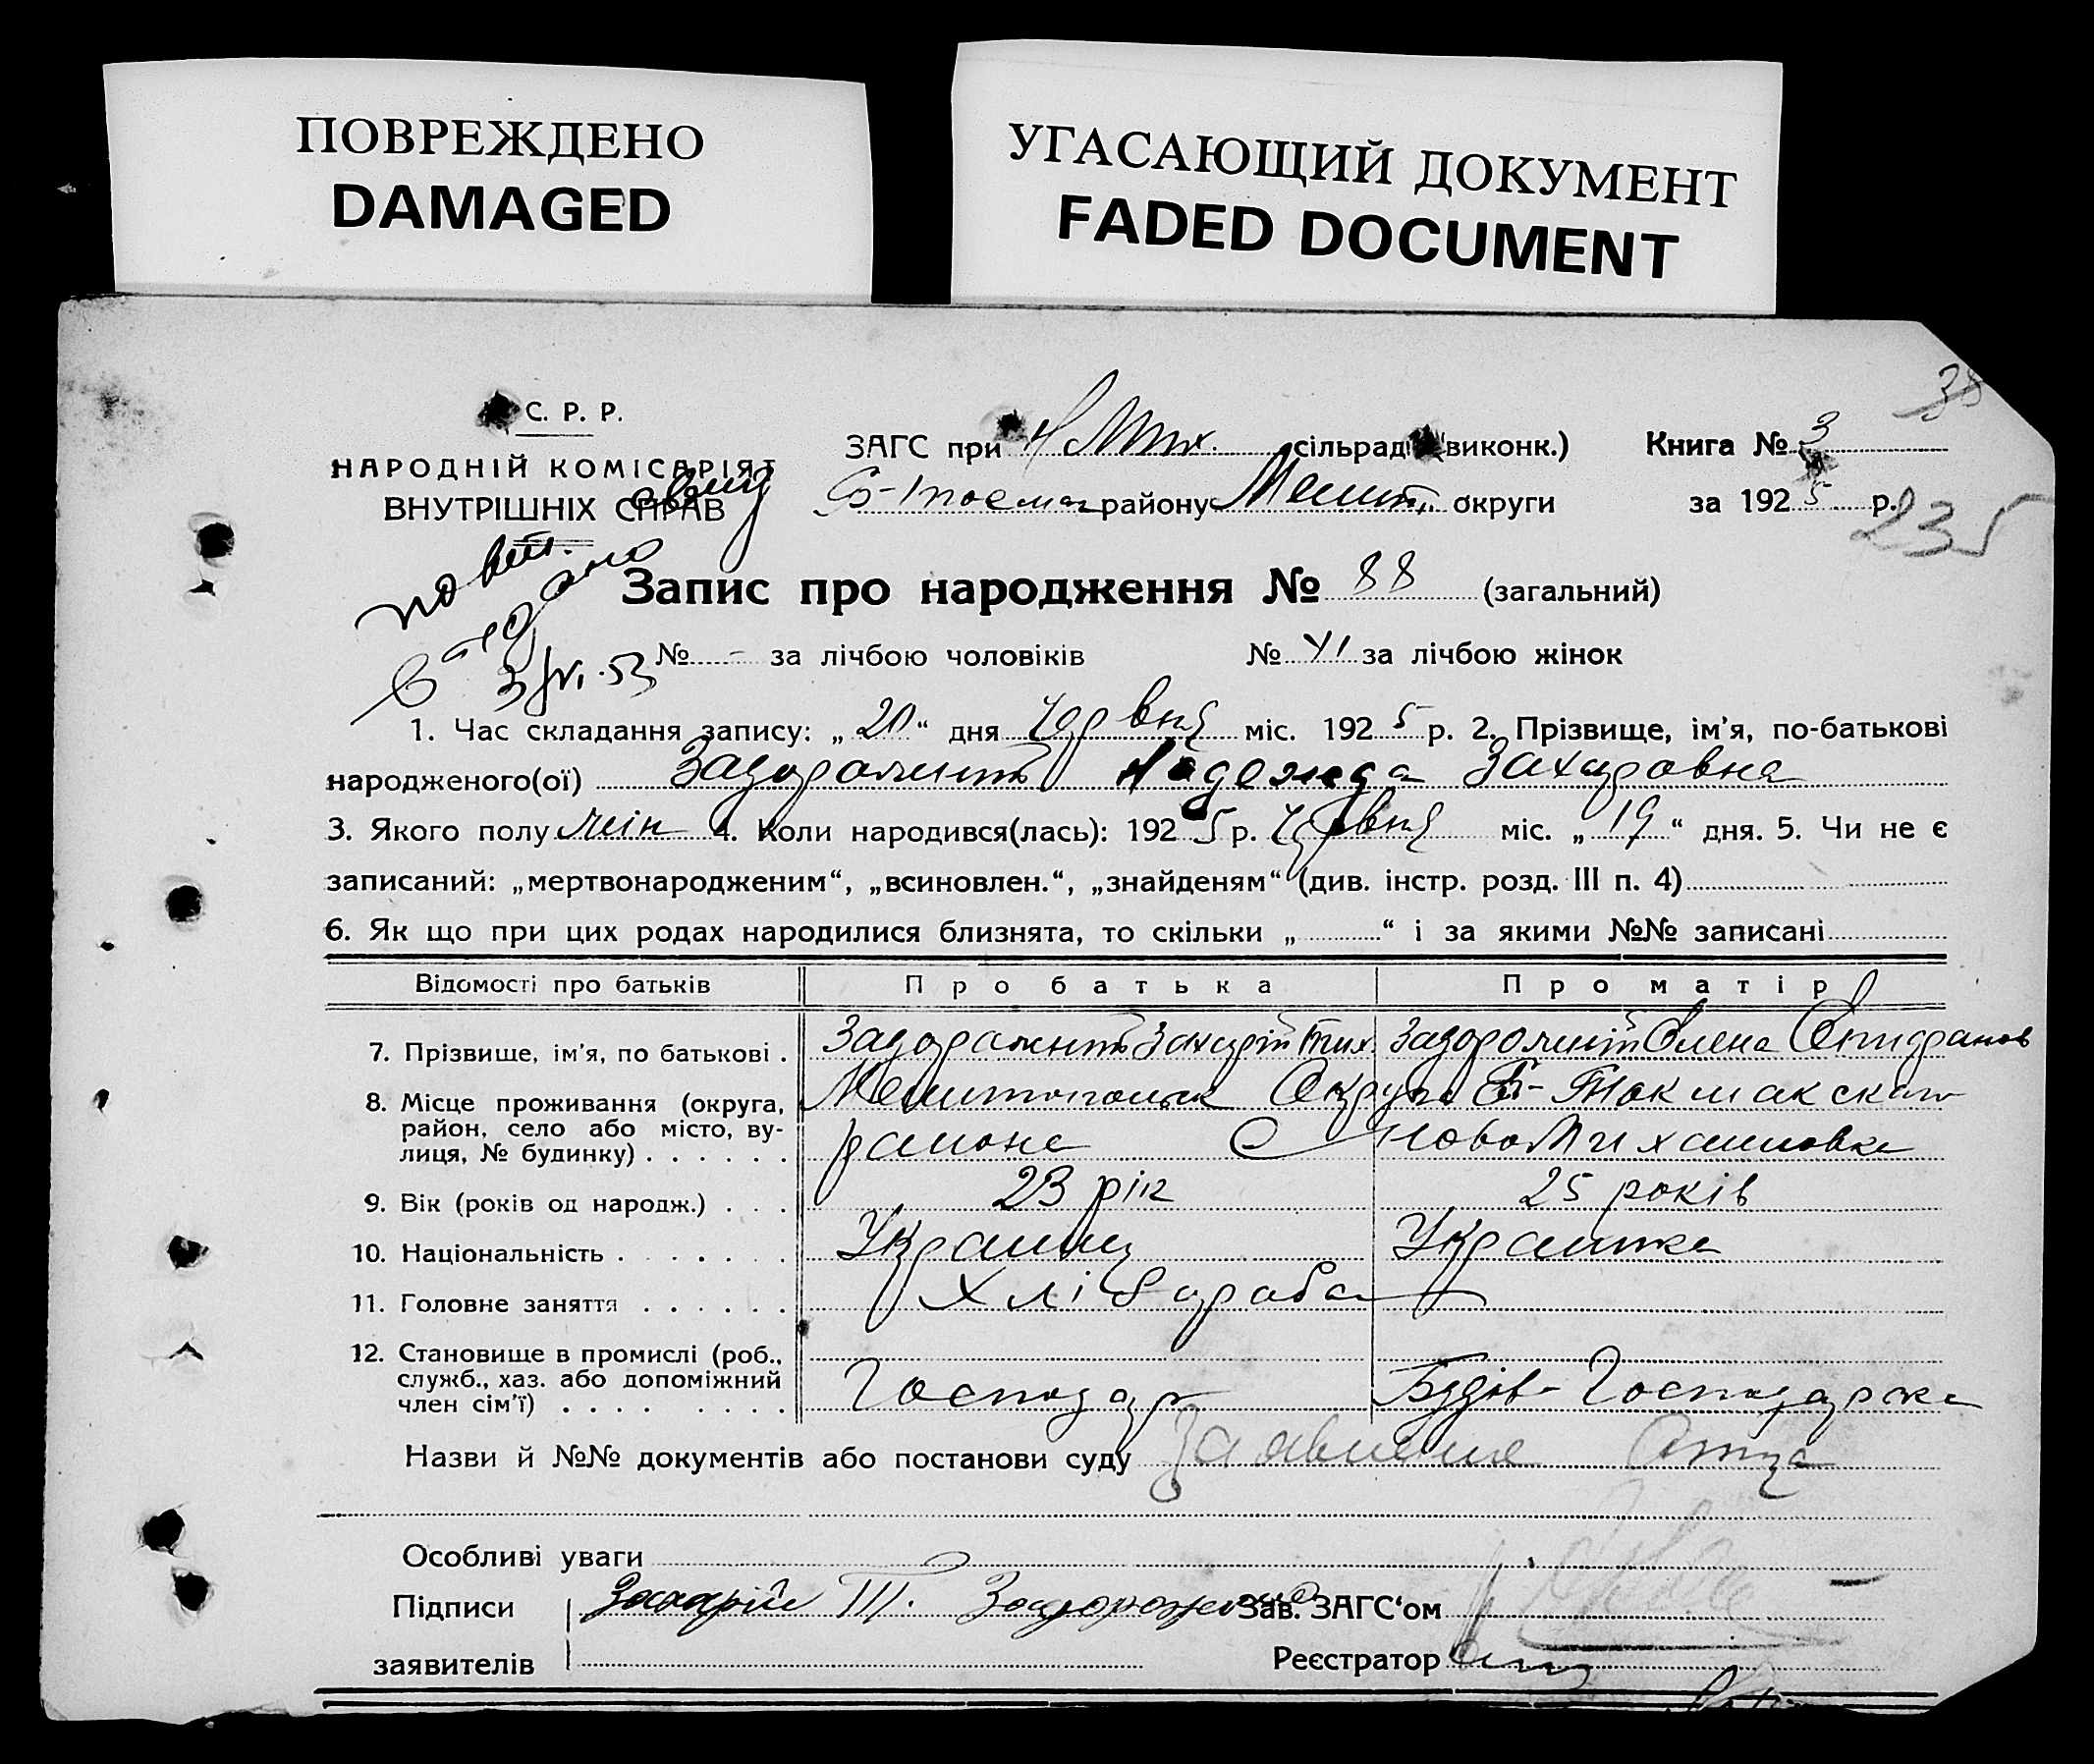 ПОВРЕЖДЕНО
DAMAGED
УГАСАЮЩИЙ ДОКУМЕНТ
FADED DOCUMENT
С. Р. Р.
НАРОДНІЙ КОМІСАРІЯТ
ВНУТРІШНІХ СПРАВ
ЗАГС при Н Мих. сільрад (виконк.)
району Мелит. округи
Книга № 3
за 1925 р.
38
235
3/VI.53
Запис про народження № 88 (загальний)
№ - за лічбою чоловіків № 41 за лічбою жінок
1. Час складання запису: „20“ дня Червня міс. 1925 р. 2. Прізвище, ім'я, по-батькові
народженого(ої) Задорожній Надежда Захаровна
3. Якого полу жін 4. Коли народився(лась): 1925 р. Червня міс. „19“ дня. 5. Чи не є
записаний: „мертвонародженим“, „всиновлен.“, „знайденям“ (див. інстр. розд. III п. 4)
6. Як що при цих родах народилися близнята, то скільки „ “ і за якими №№ записані
Відомості про батьків Про батька Про матір
7. Прізвище, ім'я, по батькові . Задорожній Захарій Тих. Задорожній Олена
8. Місце проживання (округа, район, село або місто, вулиця, № будинку) . . . . . . Округа Б-Токмакскаго
района С Ново Михайловка
9. Вік (років од народж.) . . . 23 рік 25 років
10. Національність . . . . . . Украинец Украинка
11. Головне заняття . . . . . . Хлібороб
12. Становище в промислі (роб., служб., хаз. або допоміжний член сім'ї) . . . . . . . . Господар Господарка
Назви й №№ документів або постанови суду Заявление Отца
Особливі уваги
Підписи Захарій Т. Задорожній Зав. ЗАГС‘ом
заявителів Реєстратор